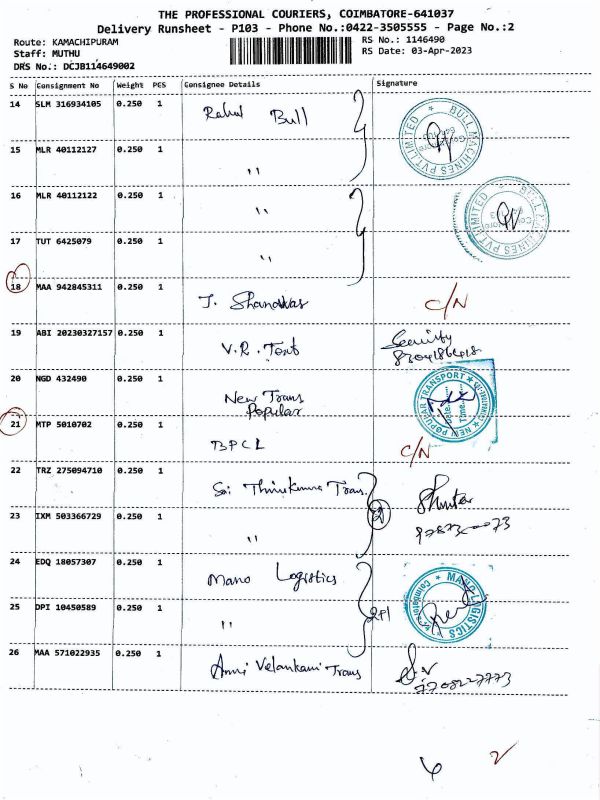 THE PROFESSIONAL COURIERS, COIMBATORE-641037
Delivery Runsheet - P103 - Phone No.:0422-3505555 - Page No.:2
Route: KAMACHIPURAM
Staff: MUTHU
DRS No.: DCJB114649002
RS No.: 1146490
RS Date: 03-Apr-2023
S No Consignment No Weight PCS Consignee Details Signature
14 SLM 316934105 0.250 1 Rahul Bull
BULL MACHINES PVT LIMITED
15 MLR 40112127 0.250 1 "
16 MLR 40112122 0.250 1 "
BULL MACHINES PVT LIMITED
17 TUT 6425079 0.250 1 "
18 MAA 942845311 0.250 1 C/N
19 ABI 20230327157 0.250 1 V.R. Text Security
20 NGD 432490 0.250 1 New Trans
Popular
NEW POPULAR TRANSPORT
Date
Time
21 MTP 5010702 0.250 1 BPCL C/N
22 TRZ 275094710 0.250 1 Sri Trans.
23 IXM 503366729 0.250 1 " 2
24 EDQ 18057307 0.250 1 Mano Logistics
MANO LOGISTICS
Coimbatore
25 DPI 10450589 0.250 1 "
26 MAA 571022935 0.250 1 Anni Velankani Trans